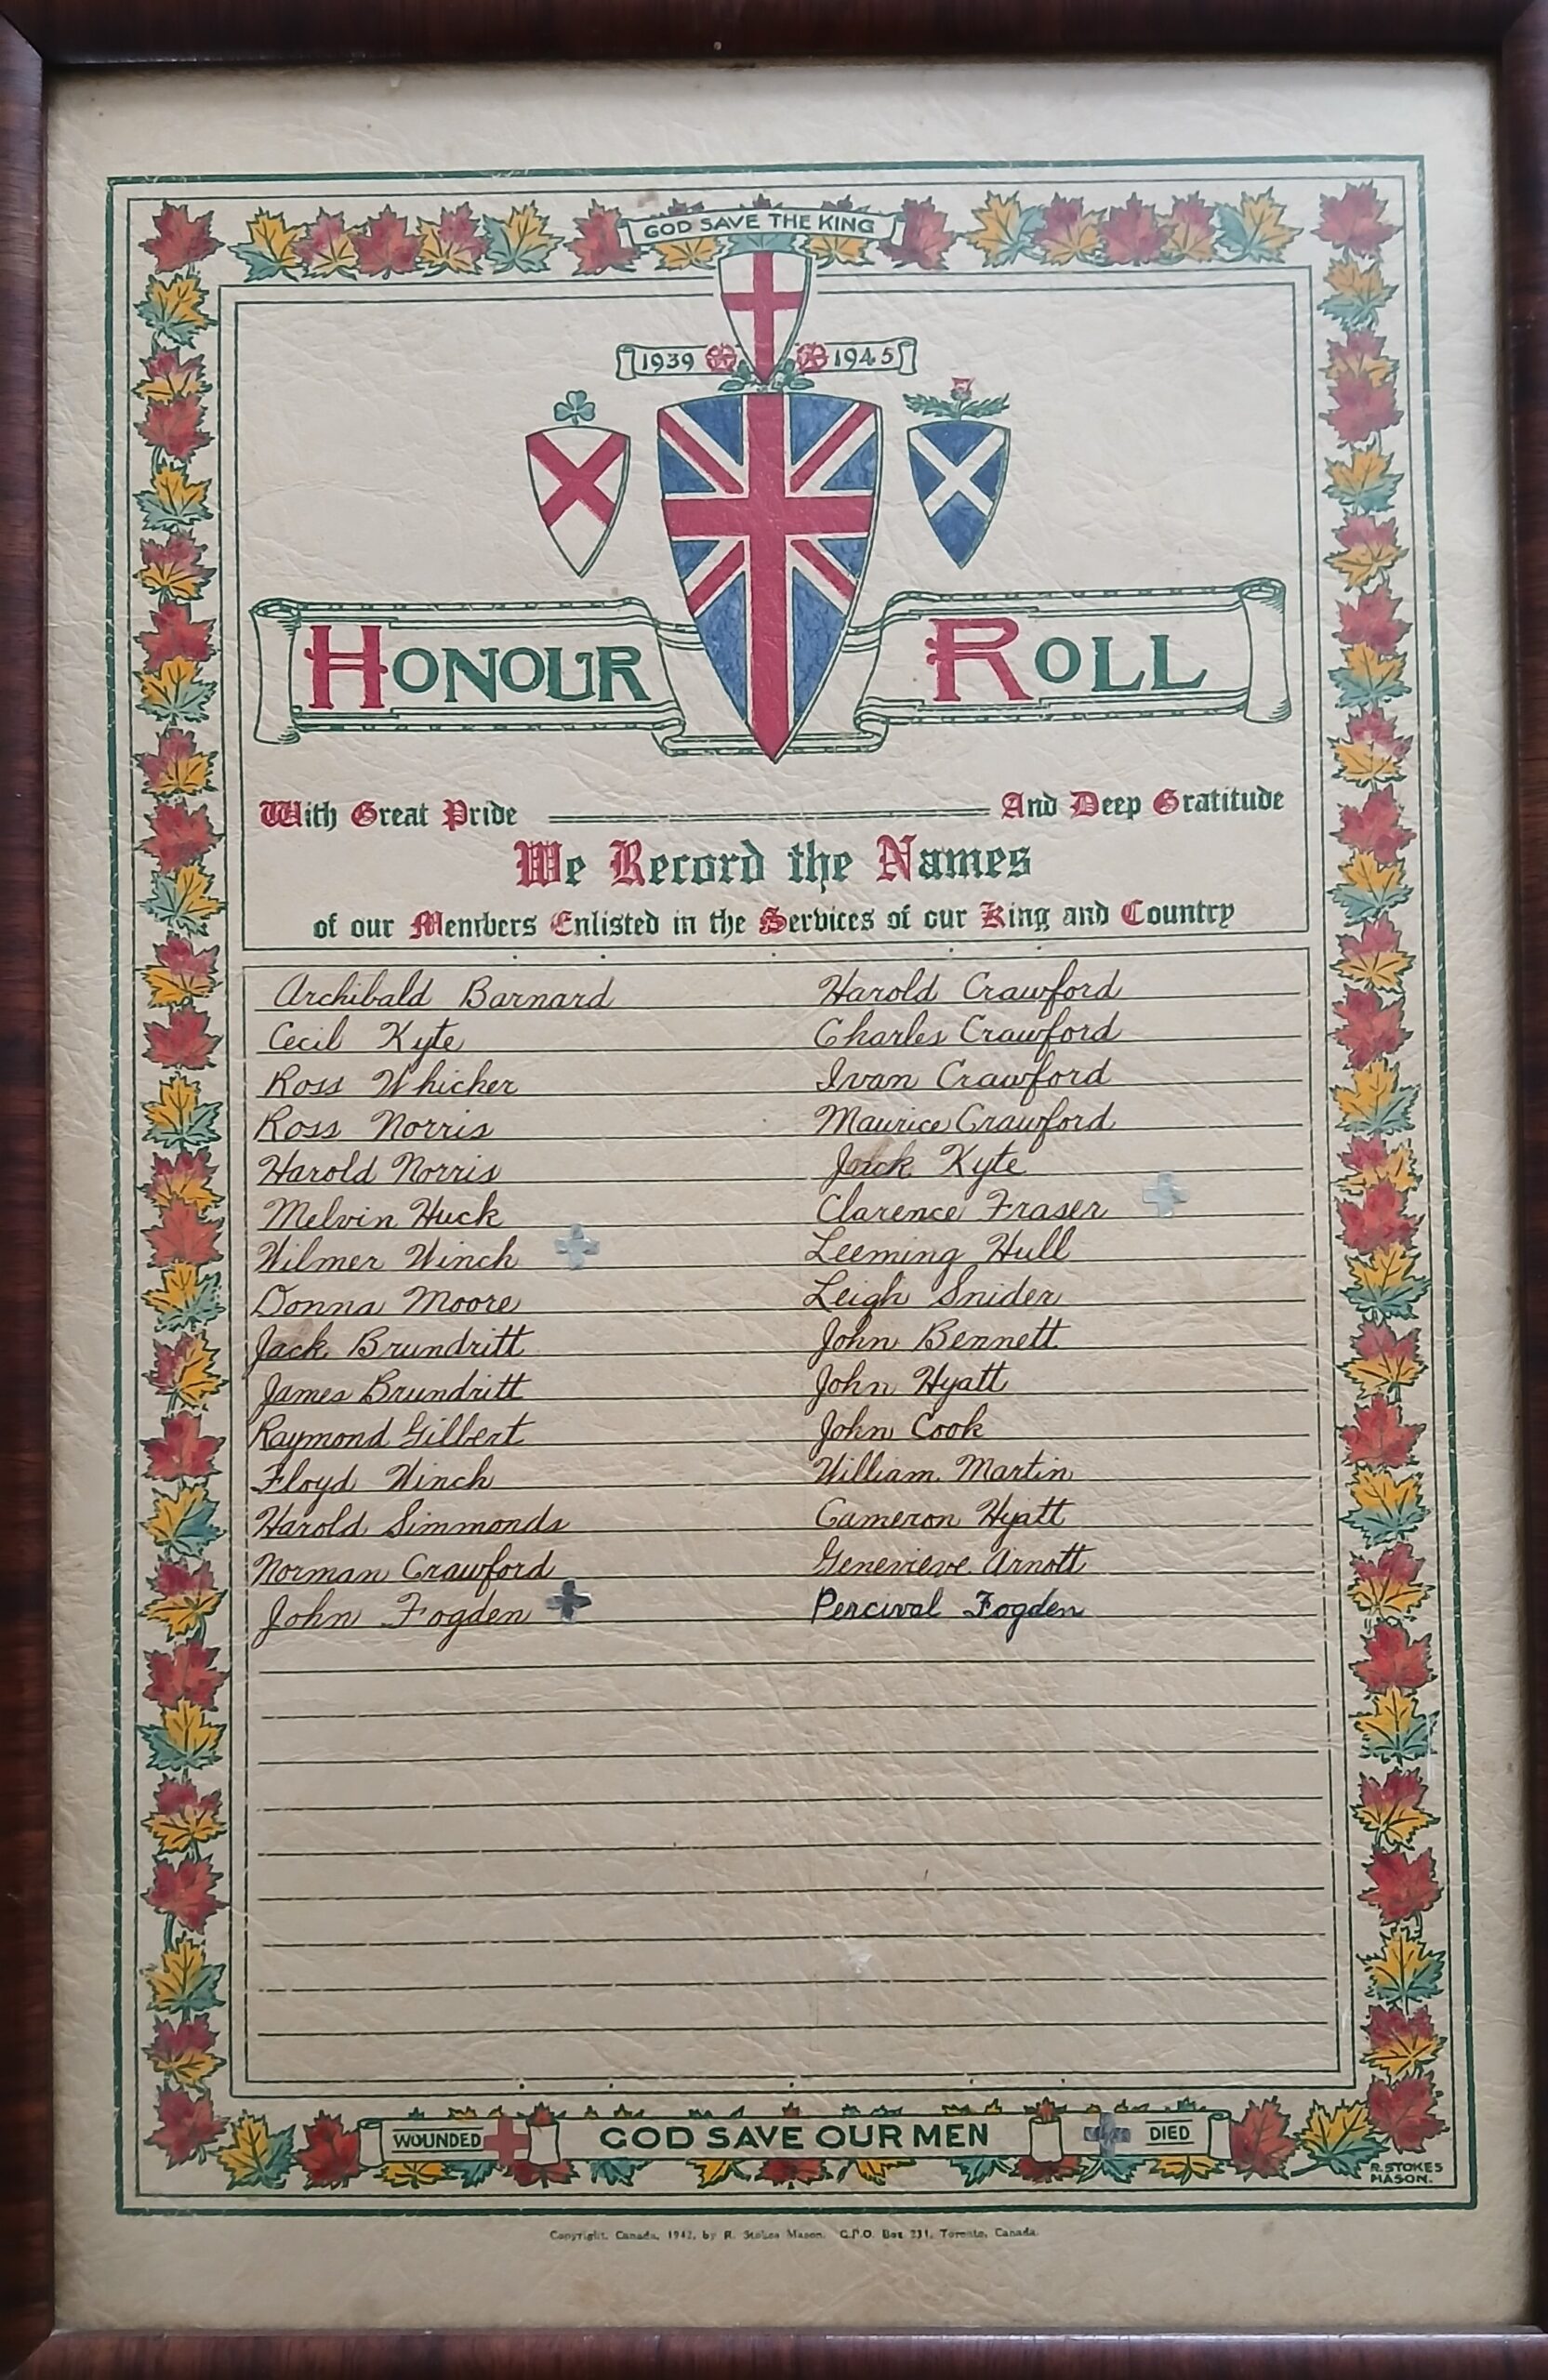 GOD SAVE THE KING
1939 1945
HONOUR ROLL
With Great Pride And Deep Gratitude
We Record the Names
of our Members Enlisted in the Services of our King and Country
Archibald Barnard
Cecil Kyte
Ross Whicher
Ross Norris
Harold Norris
Melvin Huck
Wilmer Winch
Donna Moore
Jack Brundritt
James Brundritt
Raymond Gilbert
Floyd Winch
Harold Simmonds
Norman Crawford
John Fogden
Harold Crawford
Charles Crawford
Ivan Crawford
Maurice Crawford
Jack Kyte
Clarence Fraser
Leeming Hull
Leigh Snider
John Bennett
John Hyatt
John Cook
William Martin
Cameron Hyatt
Genevieve Arnott
Percival Fogden
WOUNDED GOD SAVE OUR MEN DIED
R. STOKES
MASON.
Copyright, Canada, 1942, by R. Stokes Mason. G.P.O. Box 231, Toronto, Canada.